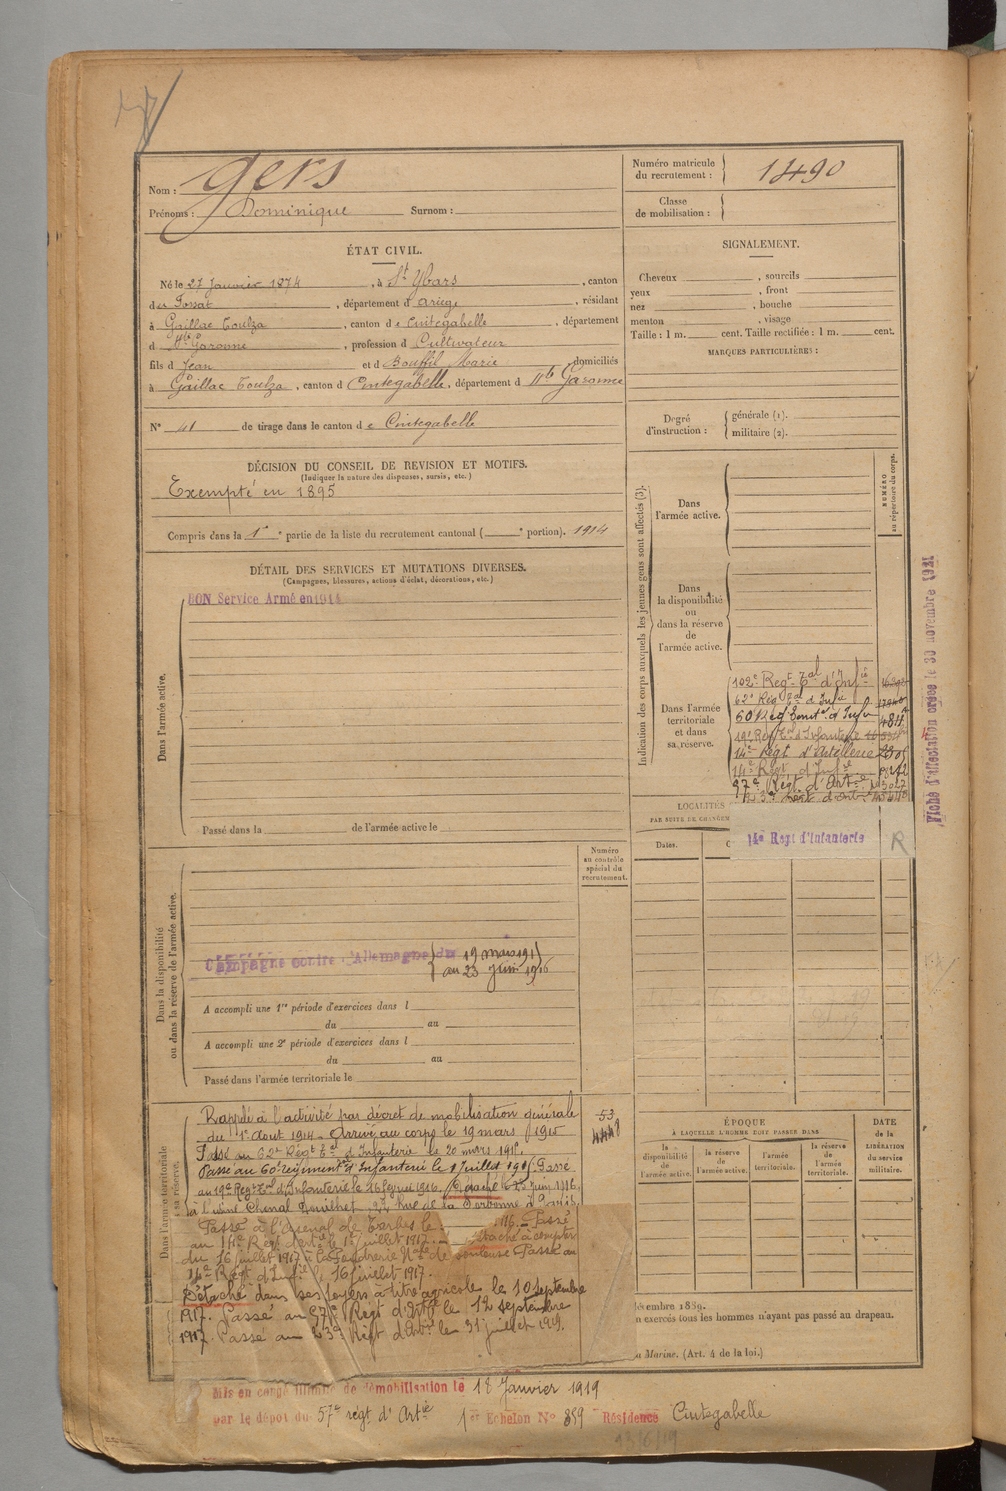 Nom : Gers
Prénoms : Dominique Surnom :
Numéro matricule du recrutement : 1490
Classe de mobilisation :
ÉTAT CIVIL.
Né le 27 Janvier 1874, à St Ybars, canton
du Fossat, département d ariège, résidant
à Gaillac Toulza, canton de Cintegabelle, département
d Hte Garonne, profession d Cultivateur
fils d Jean et d Bouffil Marie domiciliés
à Gaillac Toulza, canton d Cintegabelle, département d Hte Garonne
N° 41 de tirage dans le canton de Cintegabelle
DÉCISION DU CONSEIL DE REVISION ET MOTIFS.
(Indiquer la nature des dispenses, sursis, etc.)
Exempté en 1895
Compris dans la 1re partie de la liste du recrutement cantonal ( e portion). 1914
DÉTAIL DES SERVICES ET MUTATIONS DIVERSES.
(Campagnes, blessures, actions d'éclat, décorations, etc.)
Dans l'armée active.
BON Service Armé en 1914
Passé dans la de l'armée active le
Dans la disponibilité
ou dans la réserve de l'armée active.
Numéro
au contrôle
spécial du
recrutement.
Campagne contre l'Allemagne du 19 mars 191
au 23 juin 1916
A accompli une 1re période d'exercices dans l
du au
A accompli une 2e période d'exercices dans l
du au
Passé dans l'armée territoriale le
Dans l'armée territoriale
sa réserve.
53
4448
Rappelé à l'activité par décret de mobilisation générale
du 1er Aout 1914. Arrivé au corps le 19 mars 1915
Passé au 62e Régt Tal d'Infanterie le 20 mars 191
Passé au 60e régiment Tal d'Infanterie le 1 Juillet 191 Passé
au 19e Regt Tal d'Infanterie le 16 février 1916. Détaché le 23 juin 1916
à l'usine Chenal Douilhet, 22 Rue de la Sorbonne à Paris
Passé à l'Arsenal de Tarbes le 116. Passé
au 14e Régt d'Artie le 1er juillet 1917 étaché à compter
du 16 juillet 1917 à la Poudrerie Nale de Toulouse Passé au
14e Régt d'Infie le 16 juillet 1917.
Détaché dans ses foyers à titre agricole le 10 septembre
1917. Passé au 57e Régt d'Artie le 12 septembre
1917. Passé au 23e Régt d'Artie le 31 juillet 1919.
Mis en congé illimité de démobilisation le 18 Janvier 1919
par le dépot du 57e régt d'Artie 1er Echelon N° 859 Résidence Cintegabelle
13/6/19
SIGNALEMENT.
Cheveux , sourcils
yeux , front
nez , bouche
menton , visage
Taille : 1 m. cent. Taille rectifiée : 1 m. cent.
MARQUES PARTICULIÈRES :
Degré d'instruction : générale (1).
militaire (2).
Indication des corps auxquels les jeunes gens sont affectés (3).
NUMÉRO
au répertoire du corps.
Dans
l'armée active.
Dans
la disponibilité
ou
dans la réserve
de
l'armée active.
Dans l'armée
territoriale
et dans
sa réserve.
102e Régt Tal d'Infie
62e Rég Tal d'Infie
60 Rég Territal d'Infie
19e Regt Tal d'Infanterie
14e Régt d'Artillerie
14e Régt d'Infie
57e Régt d'Artie
23e Régt d'Artie
14e Régt d'Infanterie
R
Fiche d'affectation créée le 30 novembre 1921
LOCALITÉS
PAR SUITE DE CHANGEM
Dates.
ÉPOQUE
À LAQUELLE L'HOMME DOIT PASSER DANS
la
disponibilité
de
l'armée active.
la réserve
de
l'armée active.
l'armée
territoriale.
la réserve
de
l'armée
territoriale.
DATE
de la
LIBÉRATION
du service
militaire.
décembre 1889.
n exercés tous les hommes n'ayant pas passé au drapeau.
a Marine. (Art. 4 de la loi.)